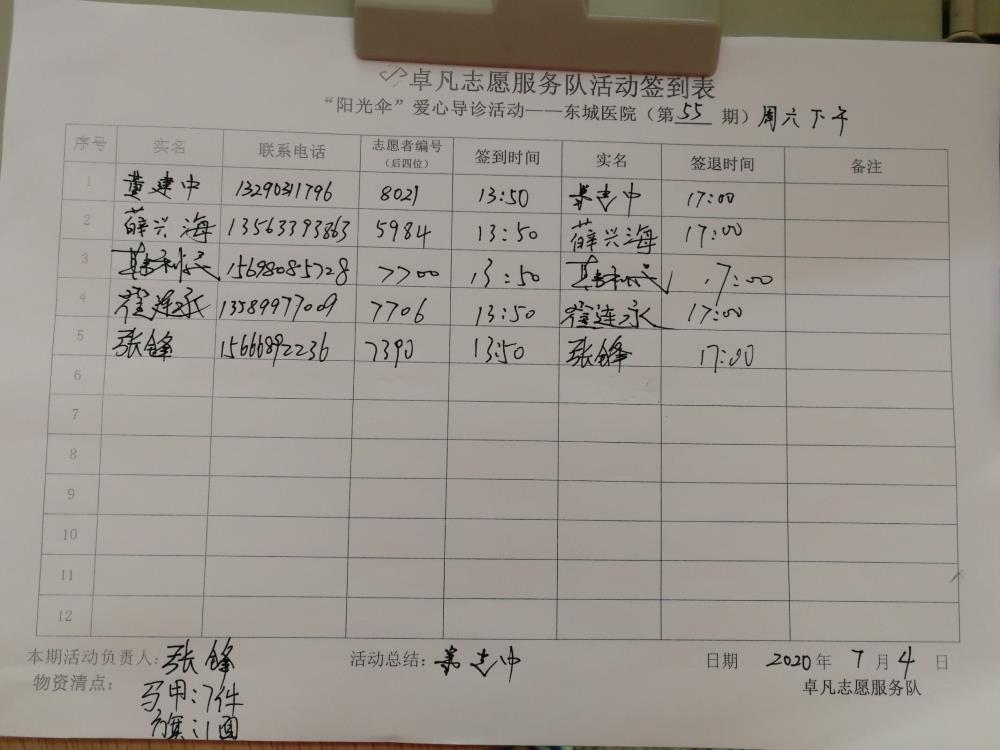 卓凡志愿服务队活动签到表
“阳光伞”爱心导诊活动——东城医院（第 55 期）周六下午
序号 实名 联系电话 志愿者编号（后四位） 签到时间 实名 签退时间 备注
1 董建中 13290311796 8021 13:50 中 17:00
2 薛兴海 13563393863 5984 13:50 薛兴海 17:00
3 15698085728 7700 13:50 17:00
4 翟连永 13589977009 7706 13:50 翟连永 17:00
5 张锋 15666892236 7390 13:50 张锋 17:00
6
7
8
9
10
11
12
本期活动负责人：张锋 活动总结：中 日期 2020年 7月 4日
物资清点： 卓凡志愿服务队
马甲：7件
旗：1面